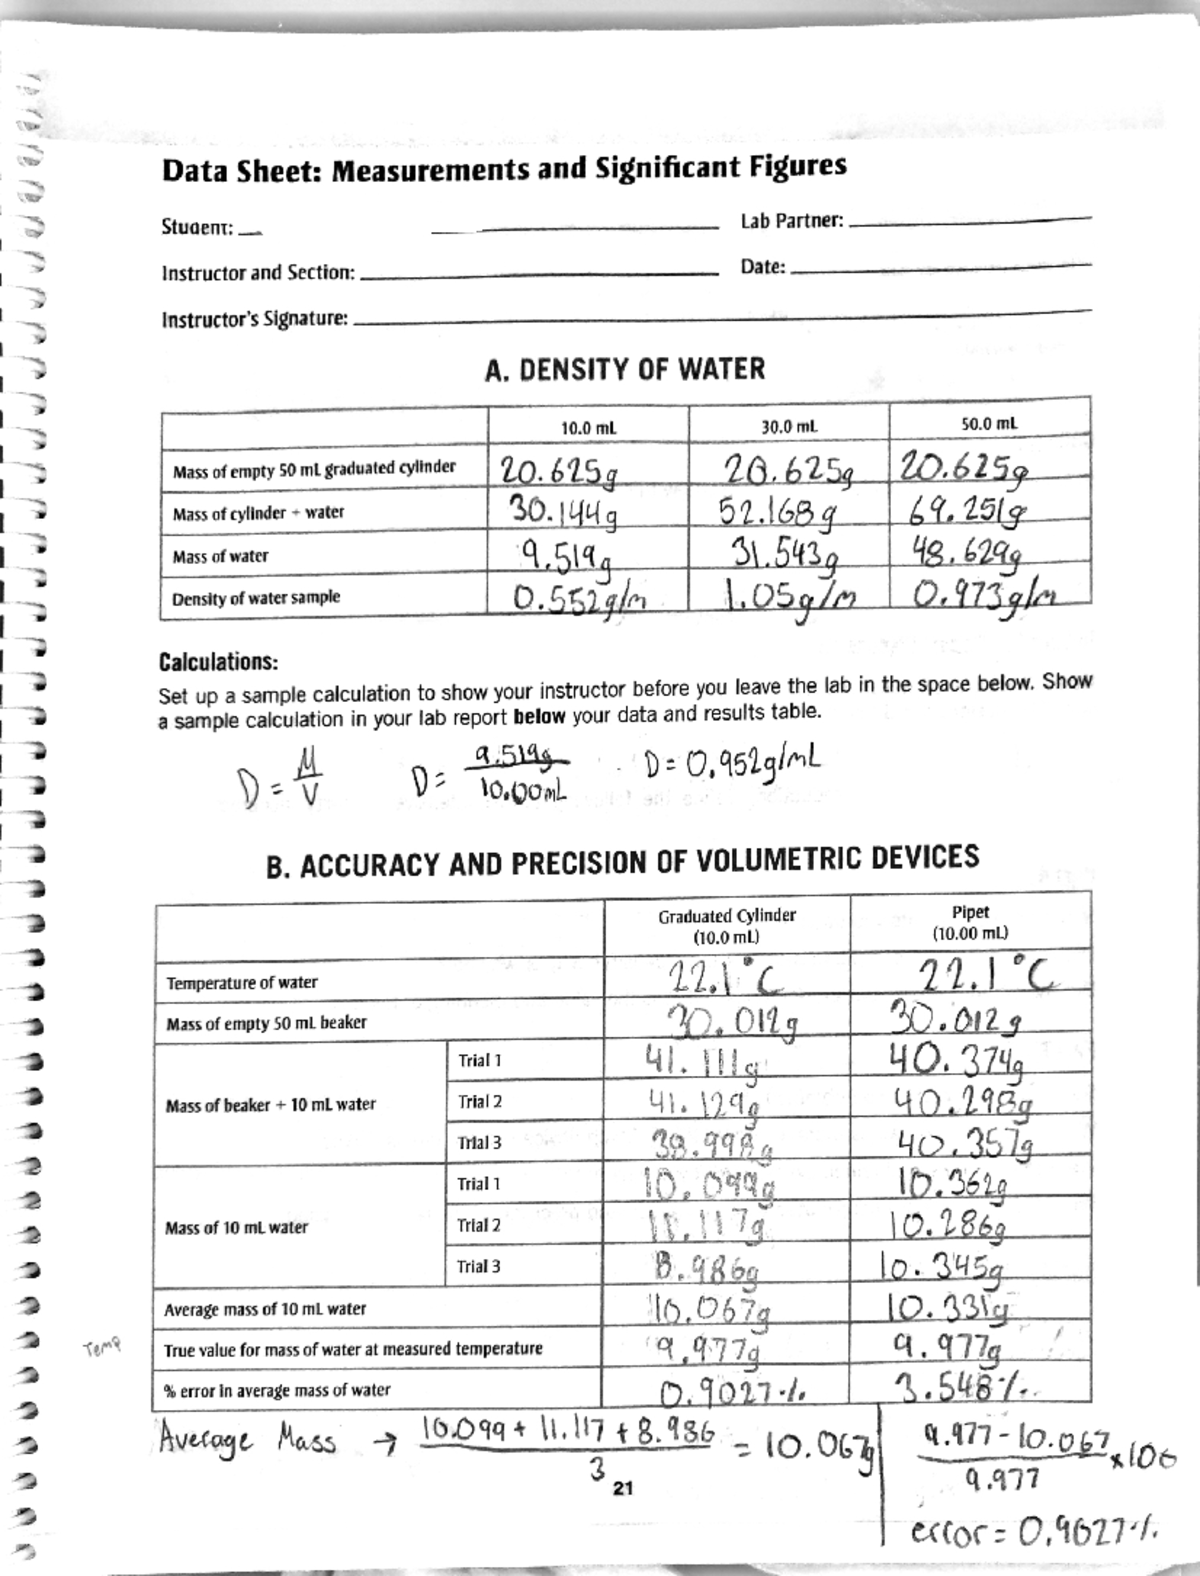 Data Sheet: Measurements and Significant Figures
Student: Lab Partner:
Instructor and Section: Date:
Instructor's Signature:
A. DENSITY OF WATER
10.0 mL 30.0 mL 50.0 mL
Mass of empty 50 mL graduated cylinder 20.625g 20.625g 20.625g
Mass of cylinder + water 30.144g 52.168g 69.251g
Mass of water 9.519g 31.543g 48.629g
Density of water sample 0.552g/m 1.05g/m 0.973g/m
Calculations:
Set up a sample calculation to show your instructor before you leave the lab in the space below. Show
a sample calculation in your lab report below your data and results table.
D = M/V D = 9.519g/10.00mL D = 0.952g/mL
B. ACCURACY AND PRECISION OF VOLUMETRIC DEVICES
Graduated Cylinder Pipet
(10.0 mL) (10.00 mL)
Temperature of water 22.1°C 22.1°C
Mass of empty 50 mL beaker 30.012g 30.012g
Mass of beaker + 10 mL water
Trial 1 41.111g 40.374g
Trial 2 41.129g 40.298g
Trial 3 38.998g 40.357g
Mass of 10 mL water
Trial 1 10.099g 10.362g
Trial 2 11.117g 10.286g
Trial 3 8.986g 10.345g
Average mass of 10 mL water 10.067g 10.331g
Temp
True value for mass of water at measured temperature 9.977g 9.977g
% error in average mass of water 0.9027% 3.548%
Average Mass → 10.099 + 11.117 + 8.986 / 3 = 10.067g
9.977 - 10.067 / 9.977 × 100
21
error = 0.9027%